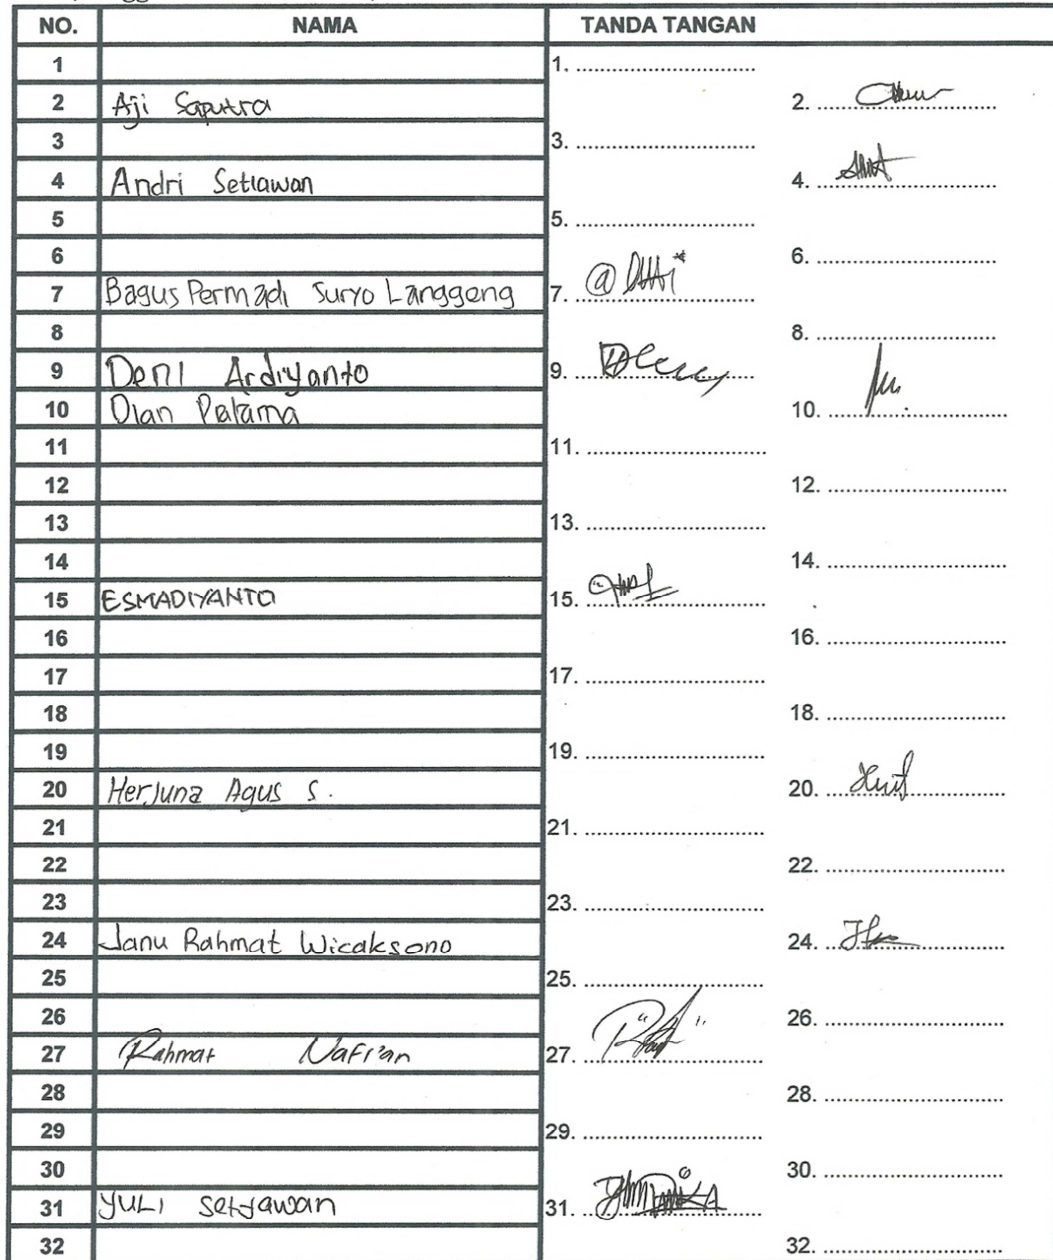 NO. NAMA TANDA TANGAN
1 1. ....................
2 Aji Saputra 2. ....................
3 3. ....................
4 Andri Setiawan 4. ....................
5 5. ....................
6 6. ....................
7 Bagus Permadi Suryo Langgeng 7. ....................
8 8. ....................
9 Deni Ardiyanto 9. ....................
10 Dian Patama 10. ....................
11 11. ....................
12 12. ....................
13 13. ....................
14 14. ....................
15 ESMADIYANTO 15. ....................
16 16. ....................
17 17. ....................
18 18. ....................
19 19. ....................
20 Herjuna Agus S. 20. ....................
21 21. ....................
22 22. ....................
23 23. ....................
24 Janu Rahmat Wicaksono 24. ....................
25 25. ....................
26 26. ....................
27 Rahmat Nafi'an 27. ....................
28 28. ....................
29 29. ....................
30 30. ....................
31 YULI Setyawan 31. ....................
32 32. ....................